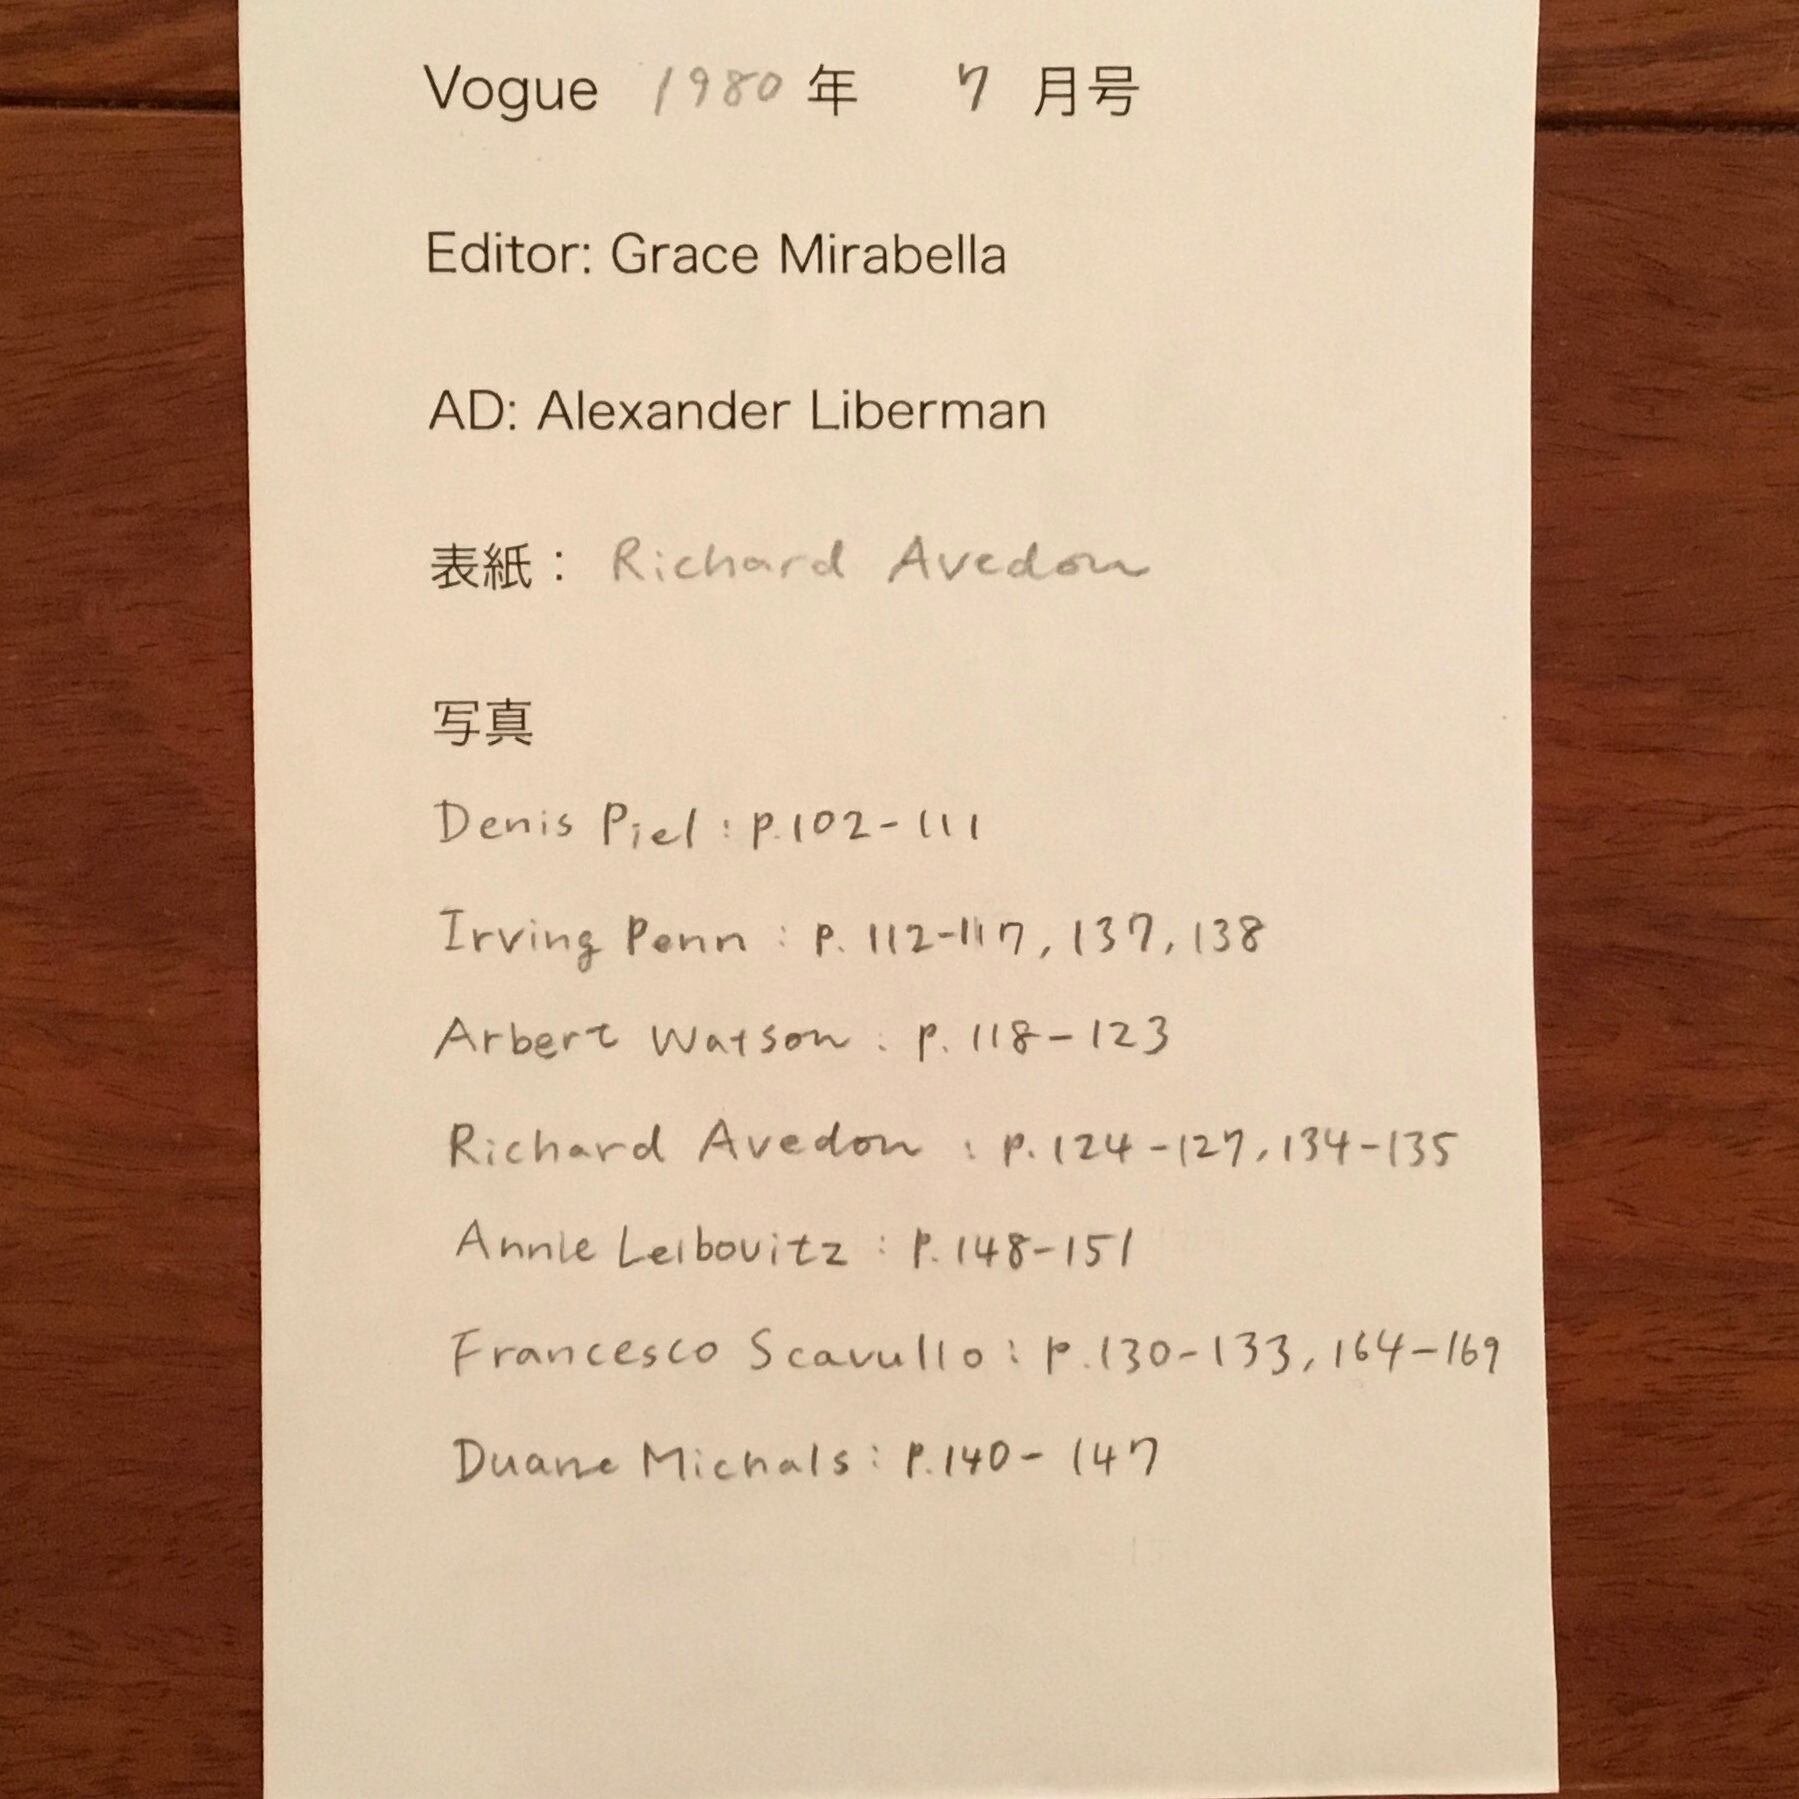 Vogue 1980 年 7 月号
Editor: Grace Mirabella
AD: Alexander Liberman
表紙： Richard Avedon
写真
Denis Piel : p.102-111
Irving Penn : p. 112-117, 137, 138
Arbert Watson : p. 118-123
Richard Avedon : p. 124-127, 134-135
Annie Leibovitz : p. 148-151
Francesco Scavullo : p. 130-133, 164-169
Duane Michals : p.140-147